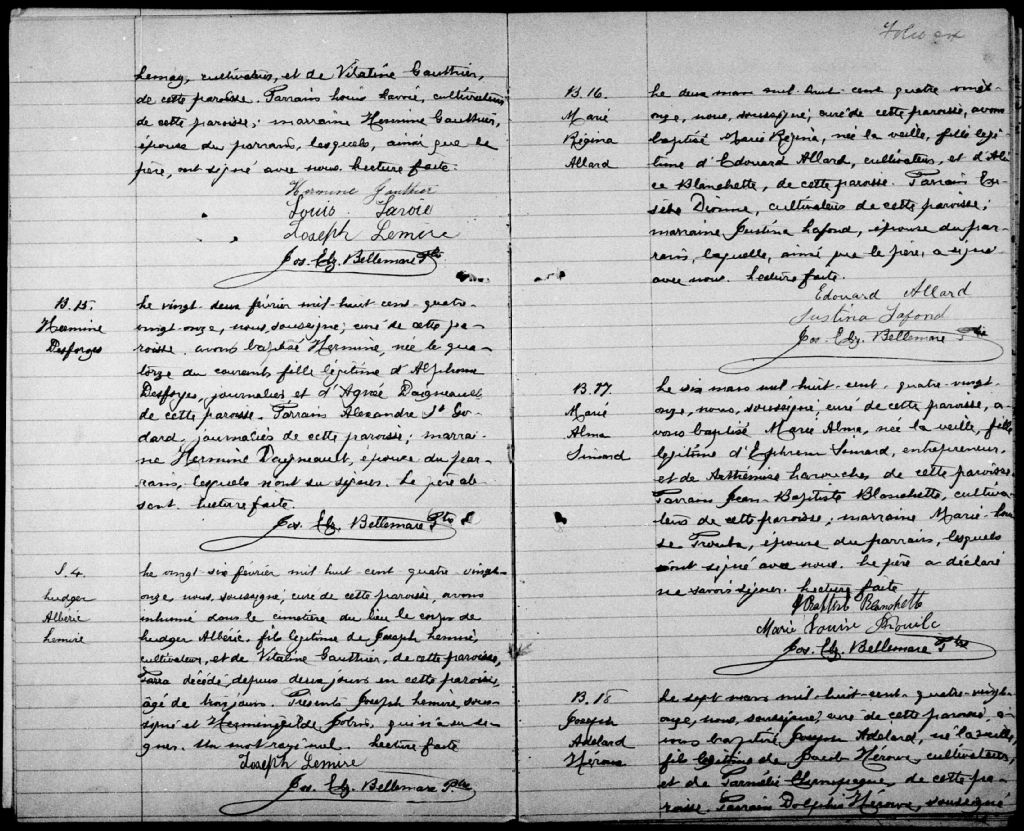 Lemay, cultivateur, et de Vitaline Gauthier,
de cette paroisse. Parrain Louis Lavoie, cultivateur
de cette paroisse; marraine Hermine Gauthier,
épouse du parrain, lesquels, ainsi que le
père, ont signé avec nous. Lecture faite.
Hermine Gauthier
Louis Lavoie
Joseph Lemire
Jos. Elz. Bellemare Ptre
B. 15.
Hermine
Desforges
Le vingt deux février mil huit cent quatre-
vingt-onze, nous, soussigné, curé de cette pa-
roisse, avons baptisé Hermine, née le qua-
torze du courant, fille légitime d'Alphonse
Desforges, journalier, et d'Agnès Daigneault
de cette paroisse. Parrain Alexandre St Go-
dard, journalier de cette paroisse; marrai-
ne Hermine Daigneault, épouse du par-
rain, lesquels n'ont su signer. Le père ab-
sent. Lecture faite.
Jos. Elz. Bellemare Ptre
S. 4.
Ludger
Albéric
Lemire
Le vingt six février mil huit cent quatre vingt-
onze, nous, soussigné, curé de cette paroisse, avons
inhumé dans le cimetière du lieu le corps de
Ludger Albéric, fils légitime de Joseph Lemire,
cultivateur, et de Vitaline Gauthier, de cette paroisse,
décédé depuis deux jours en cette paroisse,
âgé de trois jours. Présents Joseph Lemire, sous-
signé et Herménégilde, qui n'a su si-
gner. Un mot rayé nul. Lecture faite
Joseph Lemire
Jos. Elz. Bellemare Ptre
Folio six
B. 16.
Marie
Régina
Allard
Le deux mars mil huit cent quatre vingt
onze, nous, soussigné, curé de cette paroisse, avons
baptisé Marie Régina, née la veille, fille légi-
time d'Edouard Allard, cultivateur, et d'Ali-
ce Blanchette, de cette paroisse. Parrain Eu-
sèbe Dionne, cultivateur de cette paroisse;
marraine Justina Lafond, épouse du par-
rain, laquelle, ainsi que le père, a signé
avec nous. Lecture faite.
Edouard Allard
Justina Lafond
Jos. Elz. Bellemare Ptre
B. 17.
Marie
Alma
Simard
Le six mars mil huit cent quatre-vingt-
onze, nous, soussigné, curé de cette paroisse, a-
vons baptisé Marie Alma, née la veille, fille
légitime d'Ephrem Simard, entrepreneur,
et de Arthémise Larouche, de cette paroisse
Parrain Jean-Baptiste Blanchette, cultiva-
teur de cette paroisse; marraine Marie-Loui-
se Proulx, épouse du parrain, lesquels
ont signé avec nous. Le père a déclaré
ne savoir signer. Lecture faite
J Baptiste Blanchette
Marie Louise
Jos. Elz. Bellemare Ptre
B. 18
Joseph
Adélard
Héroux
Le sept mars mil-huit-cent-quatre-vingt-
onze, nous, soussigné, curé de cette paroisse, a-
vons baptisé Joseph Adélard, né la veille,
fils légitime de Jacob Héroux, cultivateur,
et de Parmélie Champagne, de cette pa-
roisse. Parrain Dolphis Héroux, soussigné